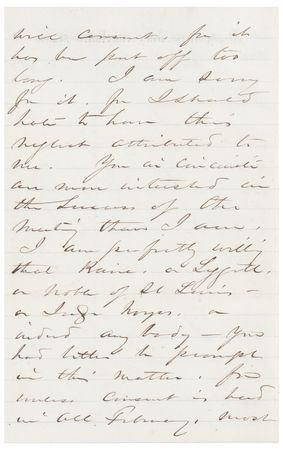 will consent, for it
has be put off too
long. I am sorry
for it, for I should
hate to have this
neglect attributed to
me. You in Cincinnati
are more interested in
the success of the
meeting than I am.
I am perfectly willing
that or Lygett,
or Noble of St Louis —
or Judge Noyes, or
indeed any body — You
had better be prompt
in this matter, for
unless consent is had
in all February, most